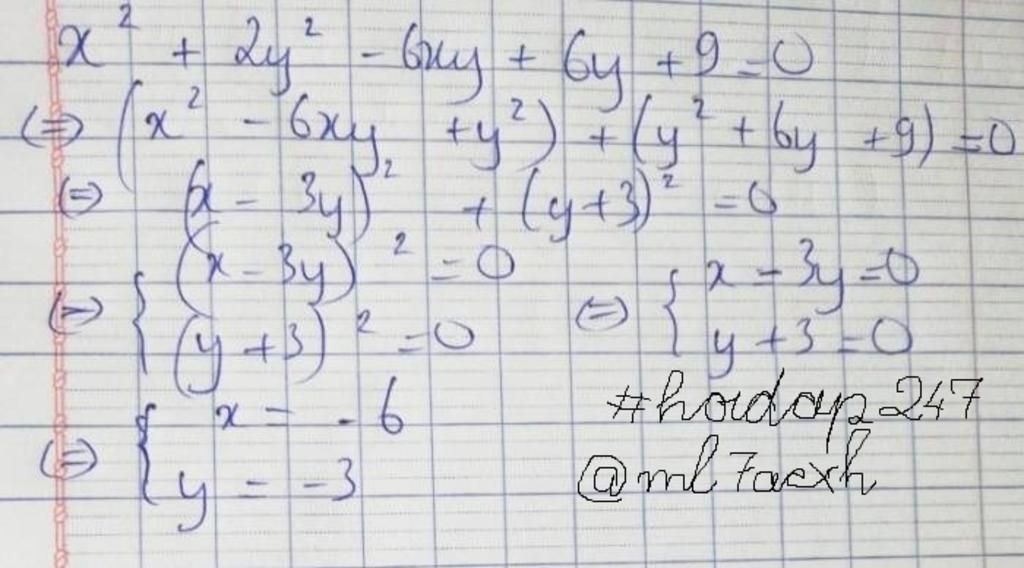 x² + 2y² - 6xy + 6y + 9 = 0
(=) (x² - 6xy + y²) + (y² + 6y + 9) = 0
(=) (x - 3y)² + (y + 3)² = 0
(=) { (x - 3y)² = 0 (=) { x - 3y = 0
(y + 3)² = 0 y + 3 = 0
(=) { x = - 6
y = -3
#hoidap247
@ml7aexh